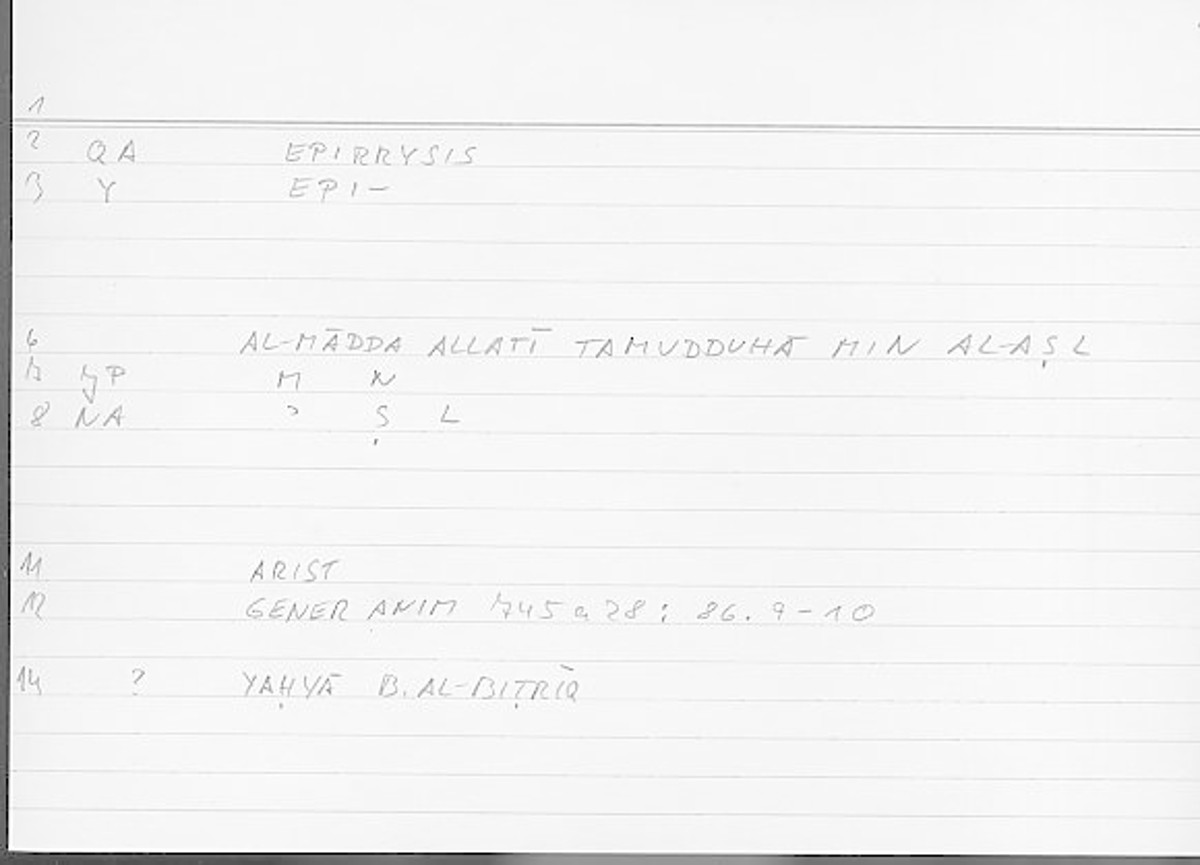 1
2 QA EPIRRYSIS
3 Y EPI-
6 AL-MĀDDA ALLATĪ TAMUDDUHĀ MIN AL-AṢL
7 M N
8 NA ʾ Ṣ L
11 ARIST
12 GENER ANIM 745a28: 86.9-10
14 ? YAḤYĀ B. AL-BIṬRĪQ